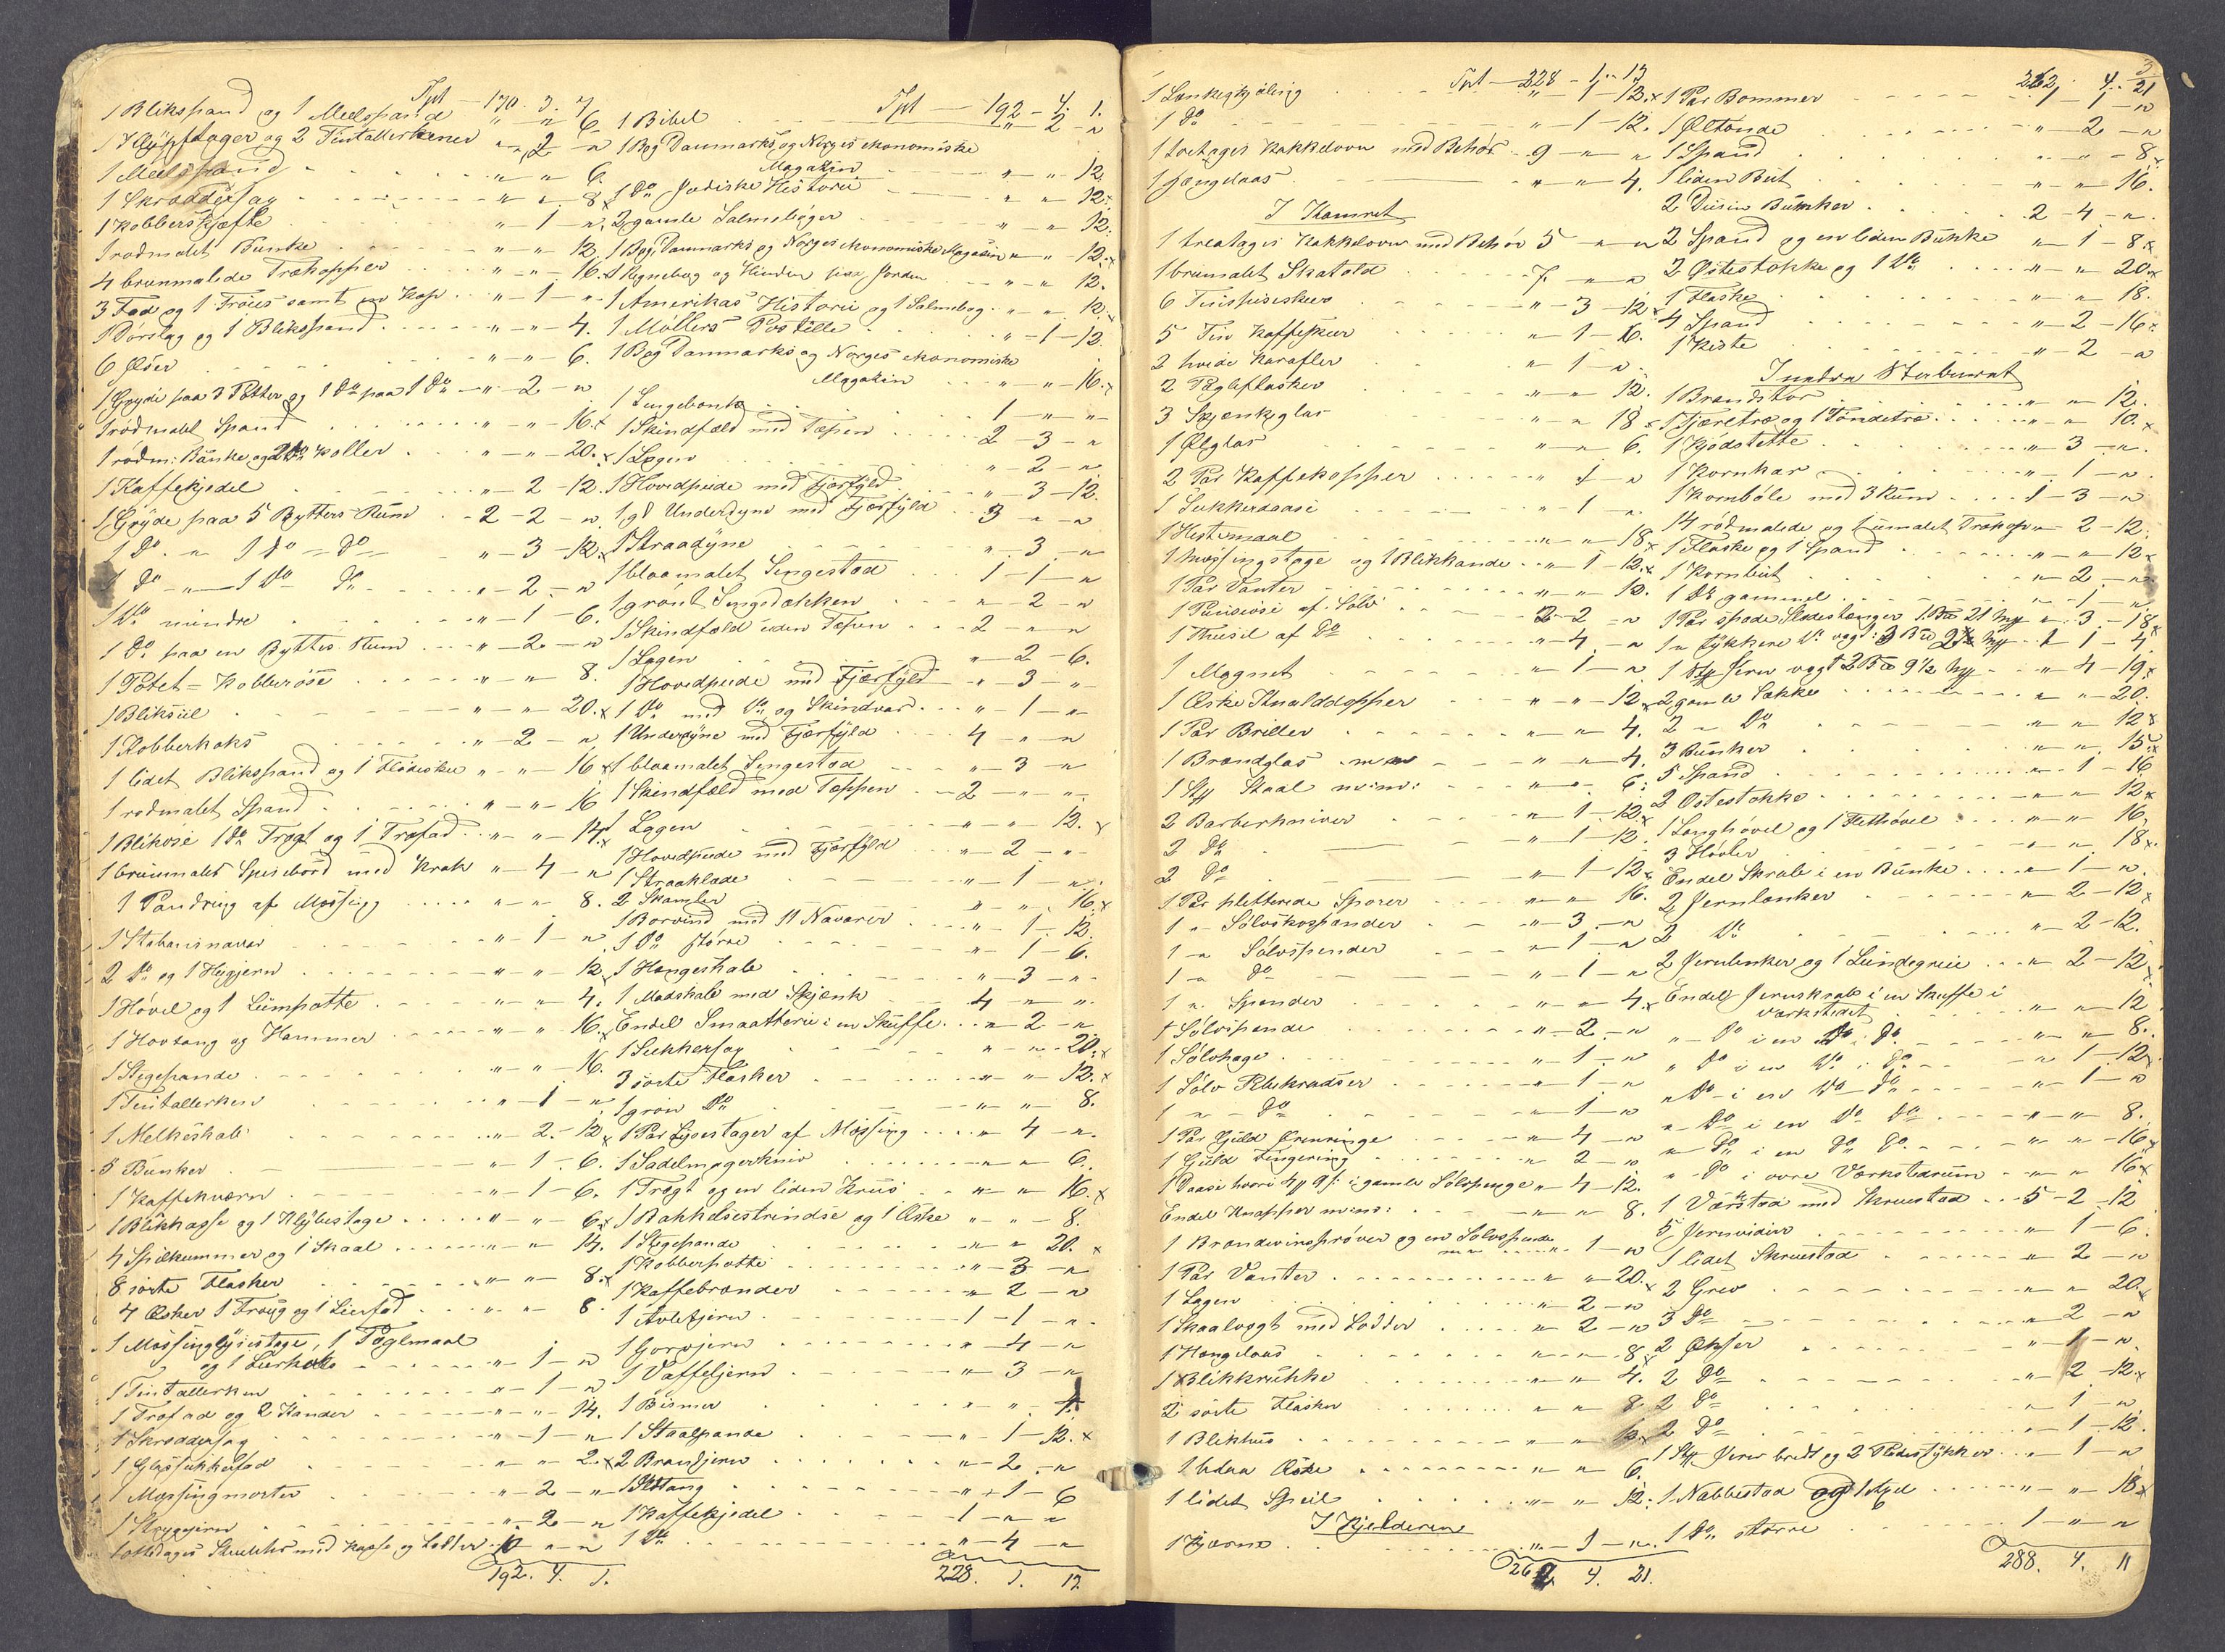 Tpt — 170. 3. 7
1 Blikspand og 1 Meelspand " " 6.
1 Klypptager og 2 Tintallerkener " 2 "
1 Meelspand " " 6.
1 Skræddersax " " 8 x
1 Kobberskjæfte " 1 "
1 rødmalet Bunke " " 12
4 brunmalede Trækopper " " 16. x
3 Fad og 1 Troug samt en Kop " 1 "
1 Dørslag og 1 Blikspand " " 4.
6 Øser " " 6.
1 Gryde paa 3 Potter og 1 Do paa 1 Do " 2 "
1 rødmalet Spand " " 16. x
1 rødm: Bunke og 2 Do Koller " " 20. x
1 Kaffekjedel " 2 12.
1 Gryde paa 5 Bytters Rum 2 2 "
1 Do " 1 Do Do " 3 12. x
1 Do " 1 Do Do " 2 "
1 Do mindre " 1 6.
1 Do paa en Byttes Rum " 2 "
1 Potet = Kobberøse " " 8.
1 Bliksiil " " 20. x
1 Kobberkoks " 2 "
1 lidet Blikspand og 1 Flødeske " " 16 x
1 rødmalet Spand " " 16
1 Blikøse 1 Do Tragt og 1 Træfad " " 14. x
1 brunmalet Spisebord med Krak " 4 "
1 Pandring af Messing " " 8.
1 Stabursnaver " 1 "
2 Do og 1 Hugjern " " 12 x
1 Høvel og 1 Limpotte " " 4.
1 Hovtang og Hammer " " 16. x
1 Stegepande " " 16.
1 Tintallerken " 1 "
1 Melkeskab " 2 12 x
8 Bunker " 1 6.
1 Kaffekværn " 1 6.
1 Blikkasse og 1 Klybestage " " 6 x
4 Spilkummer og 1 Skaal " " 14.
8 sorte Flasker " " 8. x
4 Æsker 1 Troug og 1 Leerfad " " 8.
1 Messinglysestage, 1 Pæglmaal
og 1 Leerkrukke " 1 "
1 Tintallerken " 1 "
1 Træfad og 2 Kander " " 14.
1 Skræddersax " 1 "
1 Glassukkerfad " " 2. x
1 Messingmorter " 2 "
1 Strygejern " 2 "
1 ottedages Stueuhr med Kasse og Lodder 10 " "
192. 4. 1.
Tpt — 192 - 4. 1.
1 Bibel " 2 "
1 Bog Danmarks og Norges økonomiske
Magazin " " 12.
1 Do Jødiske Historie " " 12 x
2 gamle Salmebøger " " 12.
1 Bog Danmarks og Norges økonomiske Magasin " " 12. x
1 Regnebog og Himlen paa Jorden " " 12.
1 Amerikas Historie og 1 Salmebog " " 12. x
1 Møllers Postille " 1 12.
1 Bog Danmarks og Norges økonomiske
Magazin " " 16. x
1 Sengebonk 1 " "
1 Skindfæld med Tæpen 2 3 "
1 Lagen " 2 "
1 Hovedpude med Fjærfyld " 3 12.
1 gl Underdyne med Fjærfyld 3 " "
1 Straadyne " 3 "
1 blaamalet Sengestad 1 1 "
1 grønt Sengedækken " 2 "
1 Skindfæld uden Tæpen 2 " "
1 Lagen " 2 6.
1 Hovedpude med Fjærfyld " 3 "
1 Do med Do og Skindvar " 1 "
1 Underdyne med Fjærfyld 4 " "
1 blaamalet Sengestad " 3 "
1 Skindfæld med Tæppen 2 " "
1 Lagen " " 12. x
1 Hovedpude med Fjærfyld " 2 "
1 Straaklæde " 1 "
2 Skamler " " 16 x
1 Borvind med 11 Navarer " 1 12.
1 Do større " 1 6.
1 Hængeskab " 3 "
1 Madskab med Skjænk 4 " "
Endel Smaatterie i en Skuffe " 2 "
1 Sukkersax " " 20. x
3 sorte Flasker " " 12. x
1 grøn Do " " 8.
1 Par Lysestager af Messing " 4 "
1 Sadelmagerkniv " " 6.
1 Tragt og en liden Kruus " " 16. x
1 Bakkelsestrindse og 1 Æske " " 8.
1 Stegepande " " 20. x
1 Kobberpotte " 3 "
1 Kaffebrænder " 2 "
1 Avletjern 1 1 "
1 Gorojern " 4 "
1 Vaffeljern " 3 "
1 Bismer " " 4.
1 Staalpande " 1 12. x
2 Brandjern " 2 "
1 Ildtang " 1 6
1 Kaffekjedel 1 " "
1 Do " 4 "
228. 1. 13.
Tpt — 228 - 1 - 13
1 Lænkeskjøling " 1 12. x
1 Do " 1 12.
1 toetages Kakkelovn med Behør 9 " "
1 Hængelaas " " 4.
I Kamret
1 treetages Kakkelovn med Behør 5 " "
1 brunmalet Skatold 7 " "
6 Tinspiseskeer " 3 12 x
5 Tin Kaffeskeer " 1 16.
2 hvide Karafler " 1 "
2 Pægleflasker " " 12.
3 Skjænkglas " " 18 x
1 Ølglas " " 6.
2 Par Kaffekopper " 1 "
1 Sukkerdaase " 1 "
1 Hestemaal " " 18 x
1 Messingstage og 1 Blikkande " 1 12. x
1 Par Vanter " " 12.
1 Punseøse af Sølv 2 2 "
1 Theesil af Do " 4 "
1 Magnet " 1 "
1 Æske Knaldopper " " 12 x
1 Par Briller " " 4.
1 Brændglas " " 4.
1 Stk Staal m: m: " " 6.
2 Barberkniver " 1 12 x
2 Do " 1 12.
2 Do " 1 12 x
1 Par pletterede Sporer " " 16.
1 " Sølvskospænder " 3 "
1 " Sølvspænder " 1 "
1 " Do " 1 "
1 " Spænder " " 4. x
1 Sølvspænde " 2 "
1 Sølvhage " 1 "
1 Sølv Piberadser " 1 "
1 " Do " 1 "
1 Par Guld Ørenringe " 4 "
1 Guld Fingering " 2 "
1 Daase hvori 4 Mk 9 s: i gamle Sølvpenge " 4 12.
Endel Knapper m: m: " " 8.
1 Brændevinsprøver og en Sølvspænde " 1 "
1 Par Vanter " " 20. x
1 Lagen " 2 "
1 Skaalvægt med Lodder " 2 "
1 Hængelaas " " 8. x
1 Blikkrukke " " 4.
2 sorte Flasker " " 8.
1 Blikhus " " 12. x
1 blaa Æske " " 6.
1 lidet Speil " " 12.
I Kjelderen
1 Kjærne " 1 "
262 4. 21.
3
262. 4. 21
1 Par Bommer 1 1 "
1 Øltønde " 2 "
1 Spand " " 8 x
1 liden Bøt " " 16.
2 Dusin Bunker 2 4 "
2 Spand og en liden Bunke " 1 8 x
2 Østestokke og 1 Do " " 20 x
1 Flaske " " 18.
4 Spand " 2 16 x
1 Kiste " 2 "
Indre Staburet
1 Brændetor " " 12.
1 Tjæretræ og 1 Tøndetræ " " 10. x
1 Kjødstette " 3 "
1 Kornkar " 1 "
1 Kornbøle med 3 Rum 1 3 "
14 rødmalede og 1 umalet Trækop " 2 12.
1 Flaske og 1 Spand " " 12 x
1 Kornbøt " 2 "
1 Do gammel " 1 "
1 Par spade Slædestænger 1 Bo 21 Mk " 3 18 x
1 " tykkere Do vægt: 3 Bo 2½ Mk 1 1 4
1 Stk Jern vægt 2 Bo 9½ Mk " 4 19 x
2 gamle Sække " " 20.
2 " Do " " 12 x
3 Bunker " " 15 x
5 Spand " 1 16
2 Ostestokke " " 12 x
1 Langhøvel og 1 Flethøvel " " 16.
3 Høvler " " 18 x
Endel Skrab i en Bunke " 1 "
2 Jernlænker " 2 12 x
2 Do " 2 12.
2 Jernlænker og 1 Lundegreie " 2 12 x
Endel Jernskrab i en Skuffe i
Værkstedet " " 12
" Do i en Do i Do " " 8.
" Do i en Do i Do " 1 12 x
" Do i en Do Do " 1 "
" Do i en Do Do " " 8.
" Do i en Do Do " " 16 x
" Do i øvre Værkstedrum " " 16 x
1 Værstad med Skruestad 5 2 12
5 Jernvidier " 1 6.
1 lidet Skruestad " 2 "
2 Grev " " 20. x
3 Do " 2 "
2 Økser " 1 "
2 Do " 2 12. x
2 Do " 1 "
2 Do " 1 12.
1 Stk Jern bredt og 2 Pladestykker " 1 "
1 Nabbestad og 1 Axel " " 18 x
1 Do større 1 " "
288. 4. 11